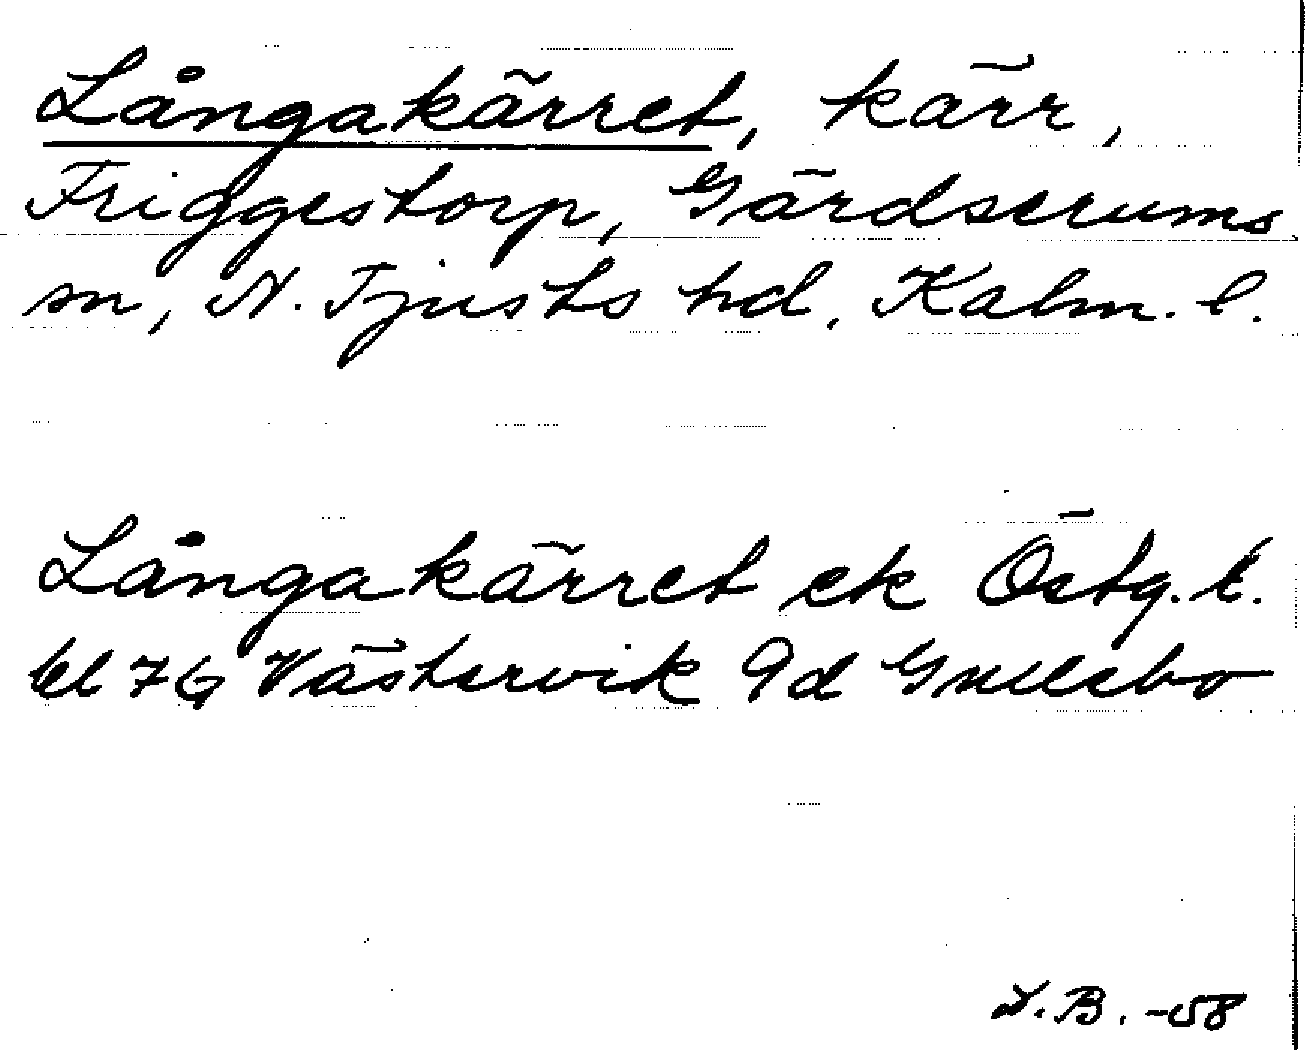 Långakärret, kärr,
Friggestorp, Gärdserums
sn, N. Tjusts hd, Kalm. l.
Långakärret ek Östg. l.
bl 7G Västervik 9d Gnilebo
I.B. -58